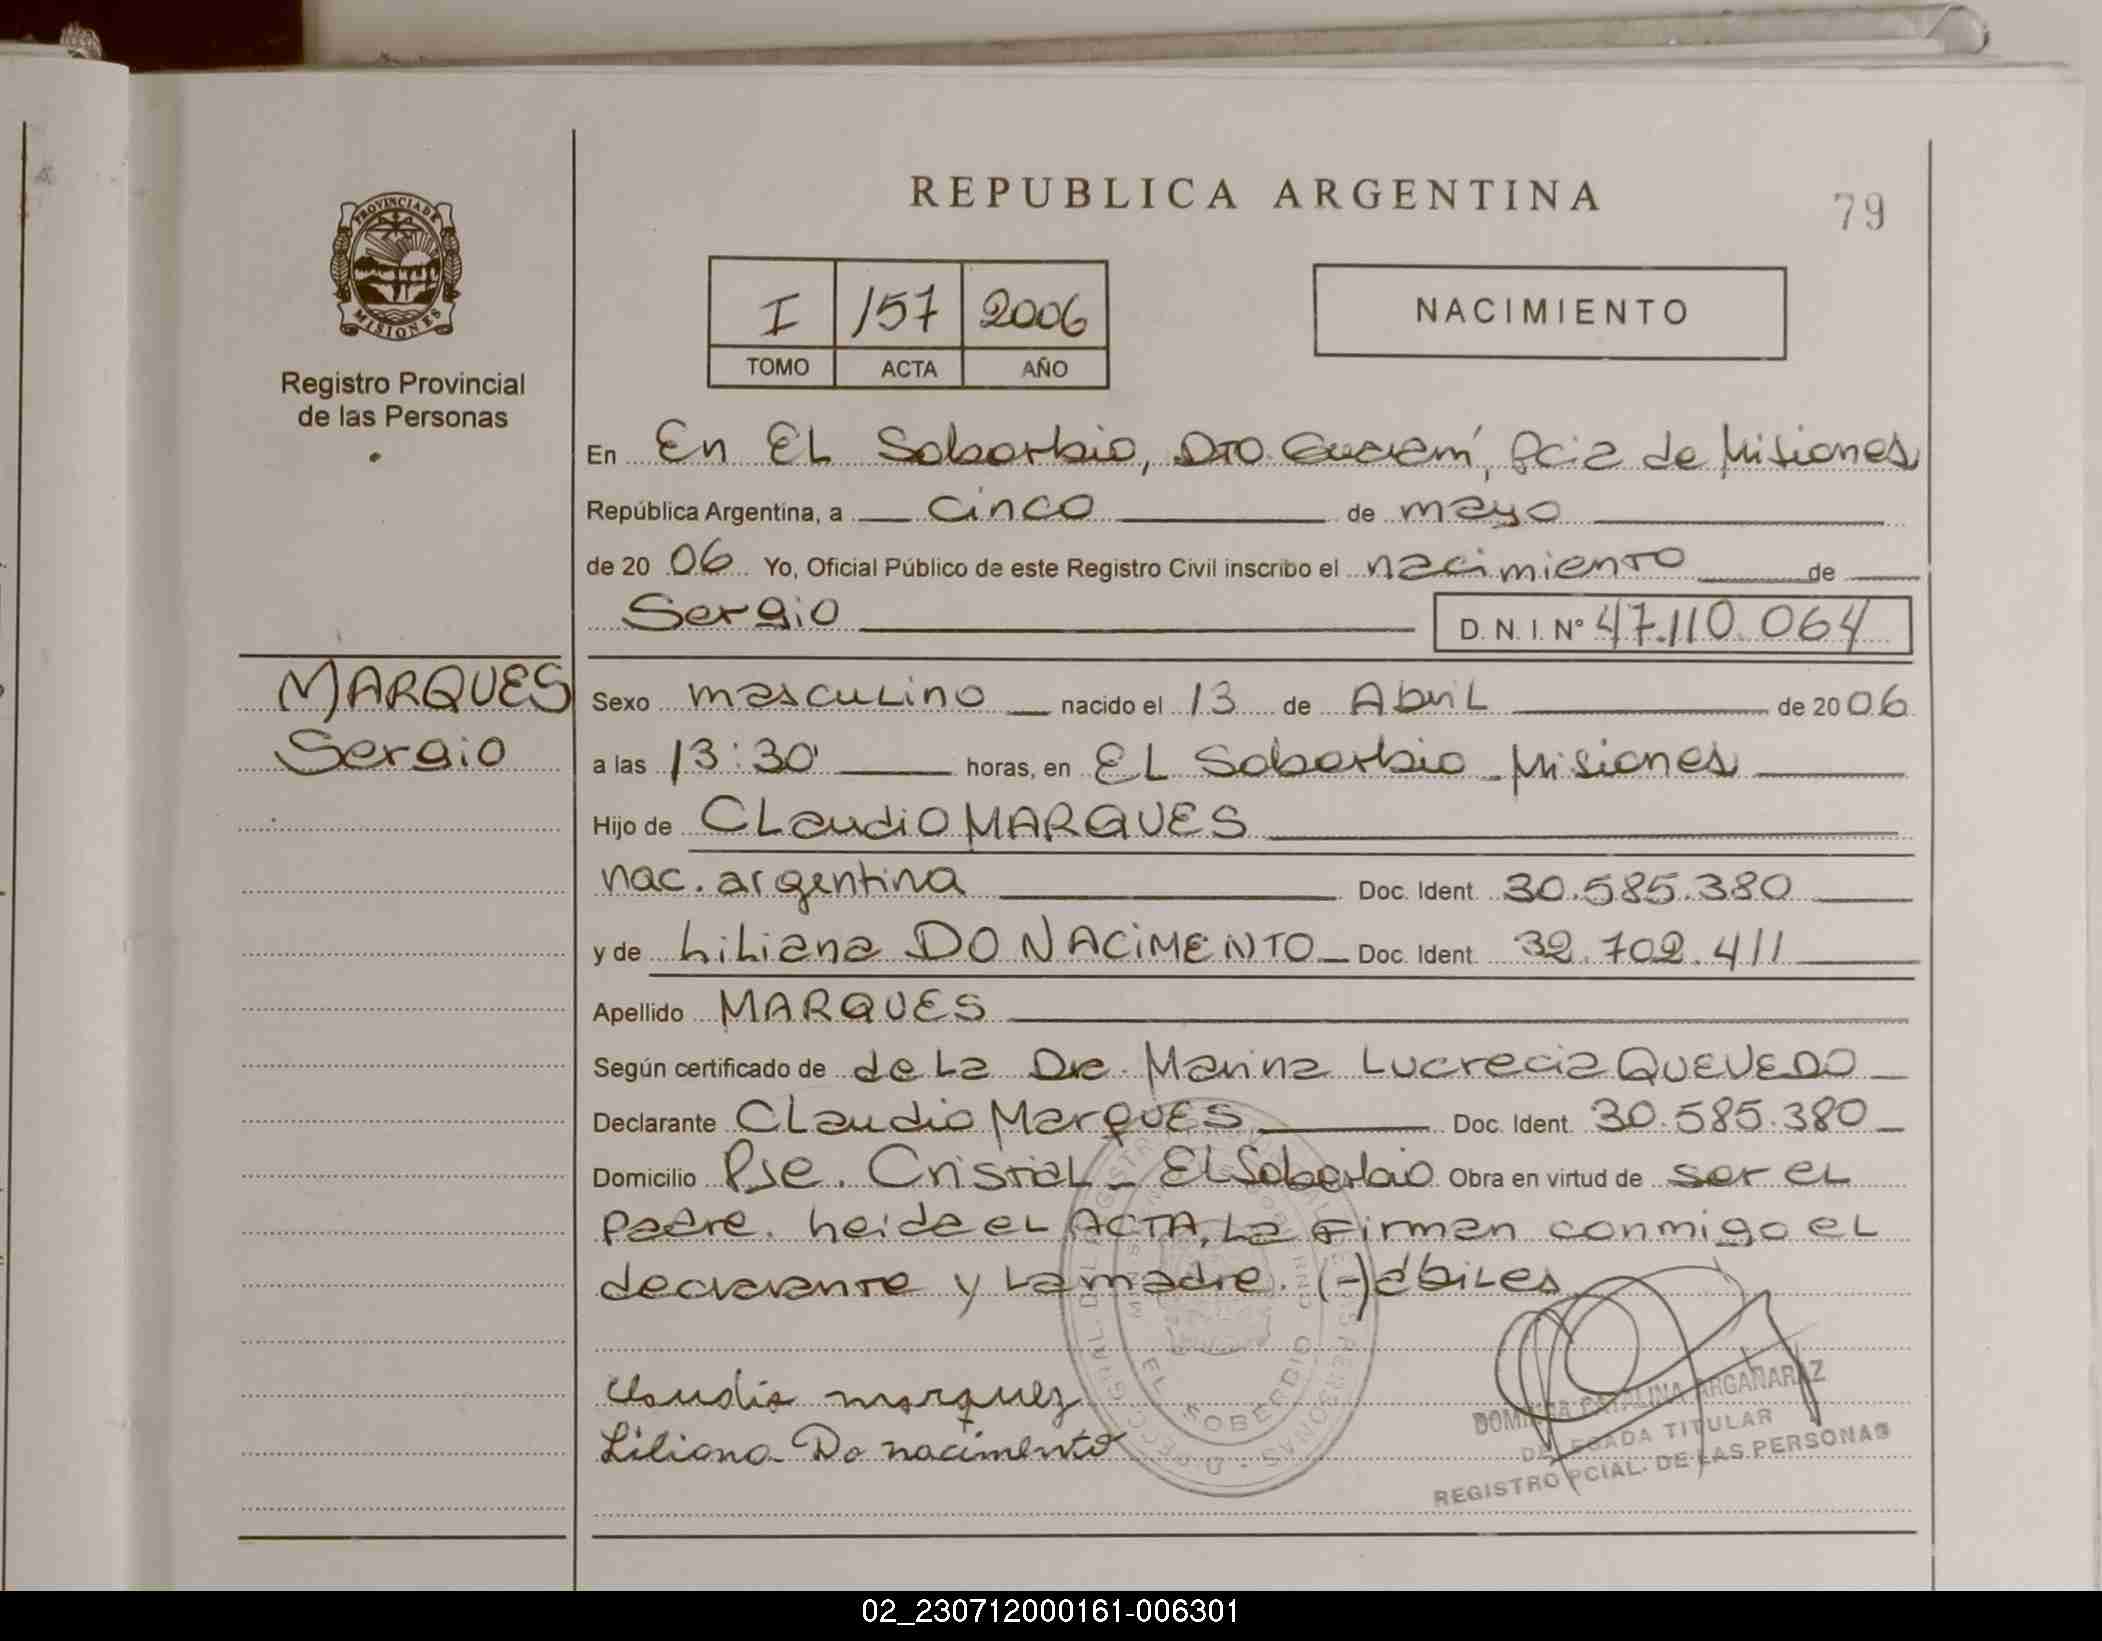 REPUBLICA ARGENTINA
79
PROVINCIA DE MISIONES
Registro Provincial
de las Personas
I 157 2006
TOMO ACTA AÑO
NACIMIENTO
En En EL Soberbio, Dto Guaraní, Pcia de Misiones
República Argentina, a cinco de mayo
de 20 06 Yo, Oficial Público de este Registro Civil inscribo el nacimiento de
Sergio D.N.I. Nº 47.110.064
MARQUES
Sergio
Sexo masculino nacido el 13 de Abril de 2006
a las 13:30 horas, en EL Soberbio - Misiones
Hijo de CLaudio MARQUES
nac. argentina Doc. Ident. 30.585.380
y de LiLiana DO NACIMENTO Doc. Ident. 32.702.411
Apellido MARQUES
Según certificado de de La Dra. Marina Lucrecia QUEVEDO
Declarante CLaudio Marques Doc. Ident. 30.585.380
Domicilio Pje. Cristal - El Soberbio Obra en virtud de ser el
padre. heida el ACTA, La Firman conmigo el
declarante y La madre. (-) ábiles
Claudio marquez
Liliana Do nacimento
EL SOBERBIO
DOMINGA CATALINA ARGAÑARAZ
DELEGADA TITULAR
REGISTRO PCIAL. DE LAS PERSONAS
02_230712000161-006301